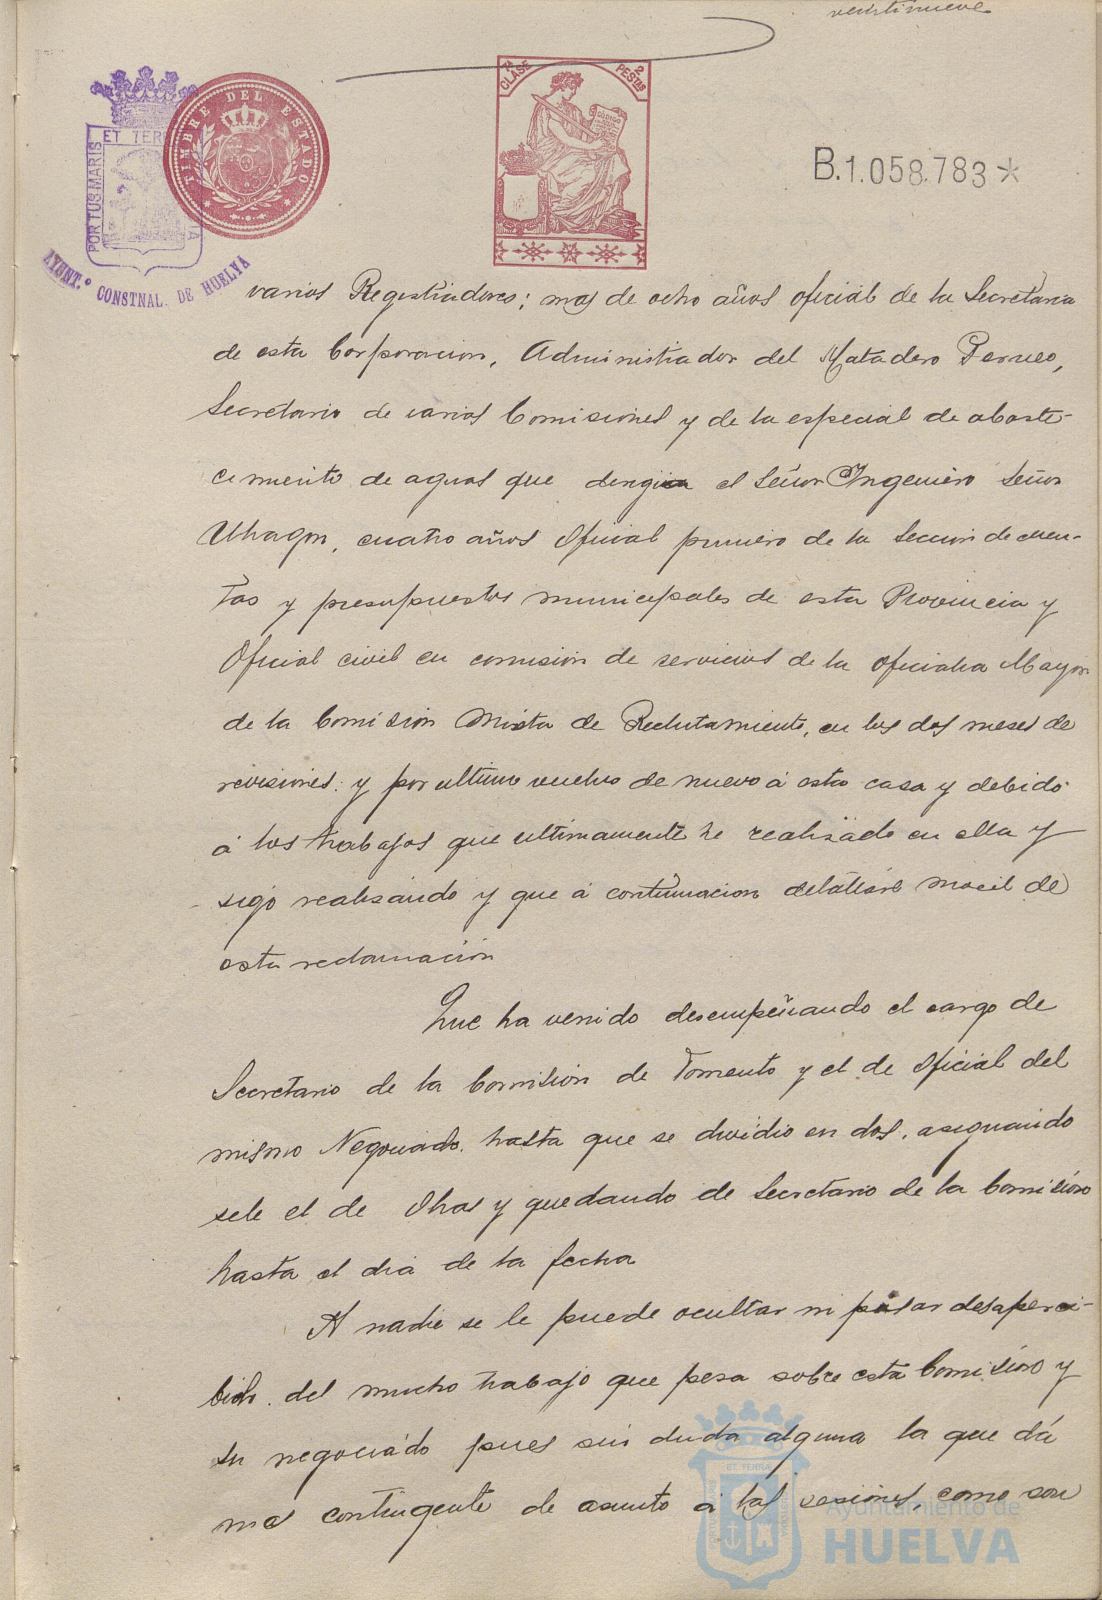 veintinueve
7ª CLASE
2 PESTAS
TIMBRE DEL ESTADO
PORTUS MARIS ET TERR
AYUNT.º CONSTNAL. DE HUELVA
B.1.058.783*
varios Registradores; mas de ocho años oficial de la Secretaria
de esta Corporacion, Administrador del Matadero
Secretario de varias Comisiones y de la especial de abaste-
cimiento de aguas que dirigia el Señor Ingeniero Señor
Uhagon, cuatro años Oficial primero de la Seccion de cuen-
tas y presupuestos municipales de esta Provincia y
Oficial civil en comision de servicios de la oficialia Mayor
de la Comision Mixta de Reclutamiento, en los dos meses de
revisiones: y por ultimo vuelvo de nuevo á esta casa y debido
á los trabajos que ultimamente he realizado en ella y
sigo realizando y que á continuacion detallaré nace de
esta reclamación
Que ha venido desempeñando el cargo de
Secretario de la Comision de Fomento y el de Oficial del
mismo Negociado, hasta que se dividio en dos, asignando
sele el de Obras y quedando de Secretario de la Comision
hasta el dia de la fecha
A nadie se le puede ocultar ni pasar desaperci-
bido del mucho trabajo que pesa sobre esta Comision y
su negociado pues sin duda alguna la que dá
mas contingente de asunto á las sesiones, como son
ET TERRA
Ayuntamiento de
HUELVA